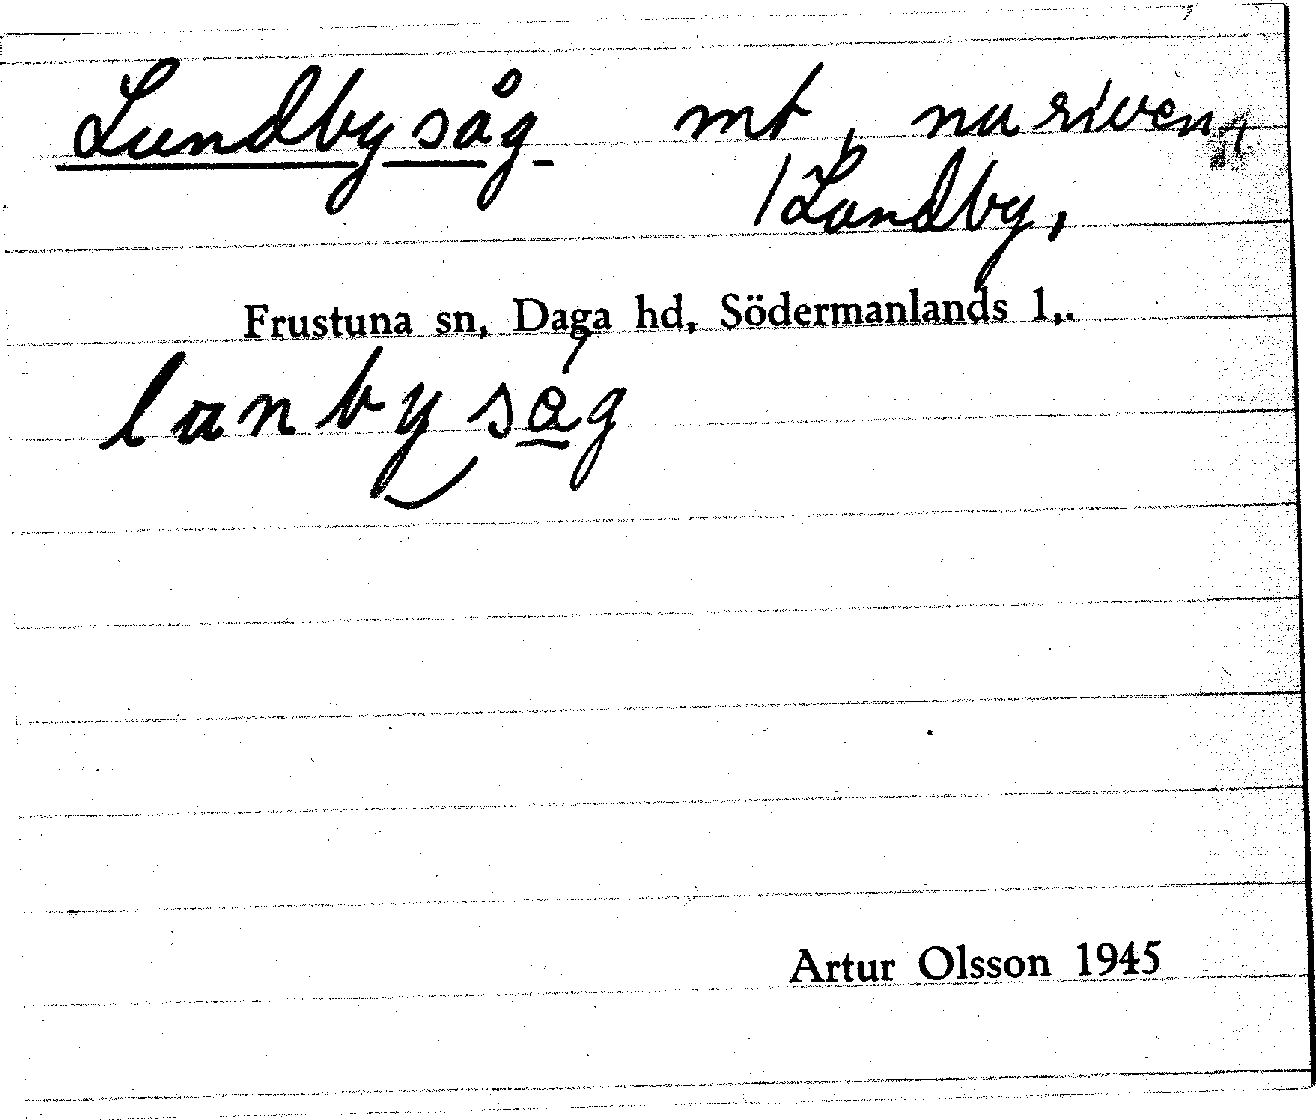 Lundbysåg mt, nu riven,
/Lundby,
Frustuna sn, Daga hd, Södermanlands l.
lunbysåg
Artur Olsson 1945